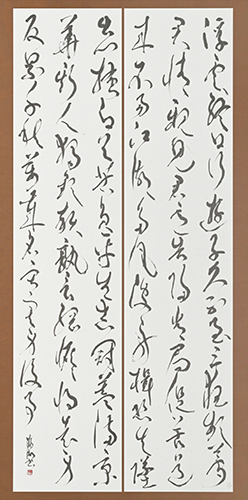 浮雲終日行遊子久不至三夜頻夢
君情親見君意告歸常局促苦道
來不易江湖多風波舟楫恐失墜
出門搔白首若負平生志冠蓋滿京
華斯人獨憔悴孰云網恢恢將老身
反累千秋萬歲名寂寞身後事